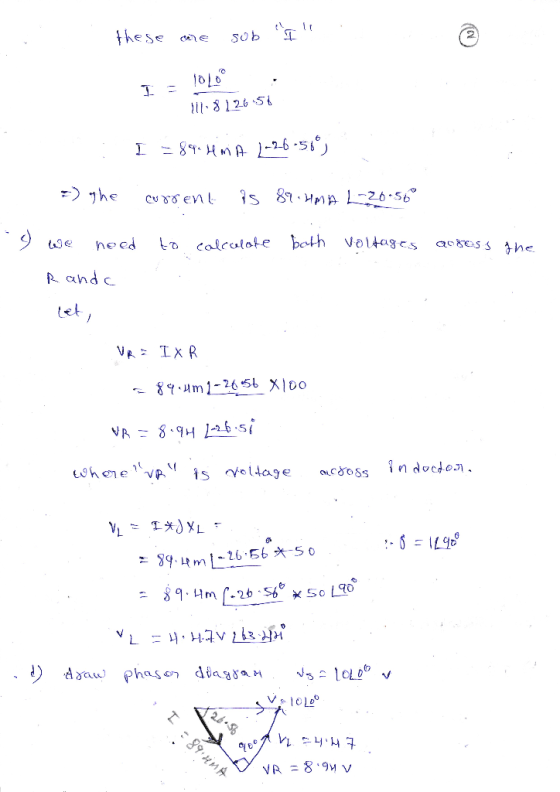 these are sub "I"
②
I = 10∠0° / 111.8∠26.56
I = 89.4mA ∠-26.56°)
=> The current is 89.4mA ∠-26.56°
c) we need to calculate both voltages across the
R and c
let,
VR = I X R
= 89.4m∠-26.56 X100
VR = 8.94 ∠-26.5
where "VR" is voltage across inductor.
VL = I*JXL =
= 89.4m∠-26.56° * 50
∴ j = 1∠90°
= 89.4m∠-26.56° * 50∠90°
VL = 4.47V ∠63.44°
d) draw phasor diagram Vs = 10∠0° v
V = 10∠0°
26.56
I = 89.4mA
90°
VL = 4.47
VR = 8.94 V